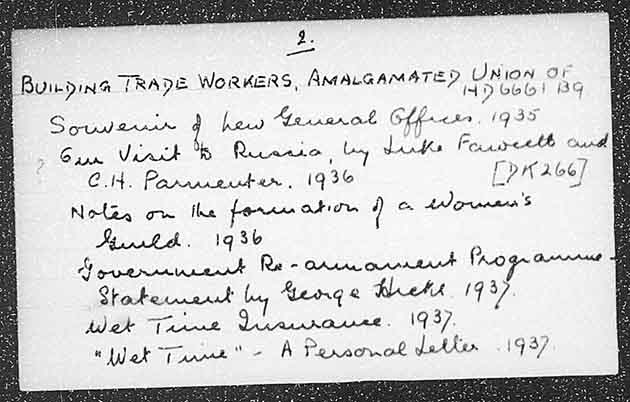 2.
BUILDING TRADE WORKERS, AMALGAMATED UNION OF
HD6661 B9
Souvenir of new General Offices. 1935
? Our Visit to Russia, by Luke Fawcett and
C.H. Parmenter. 1936 [DK266]
Notes on the formation of a Women's
Guild. 1936
Government Re-armament Programme -
Statement by George Hicks. 1937.
Wet Time Insurance. 1937.
"Wet Time" - A Personal Letter. 1937.